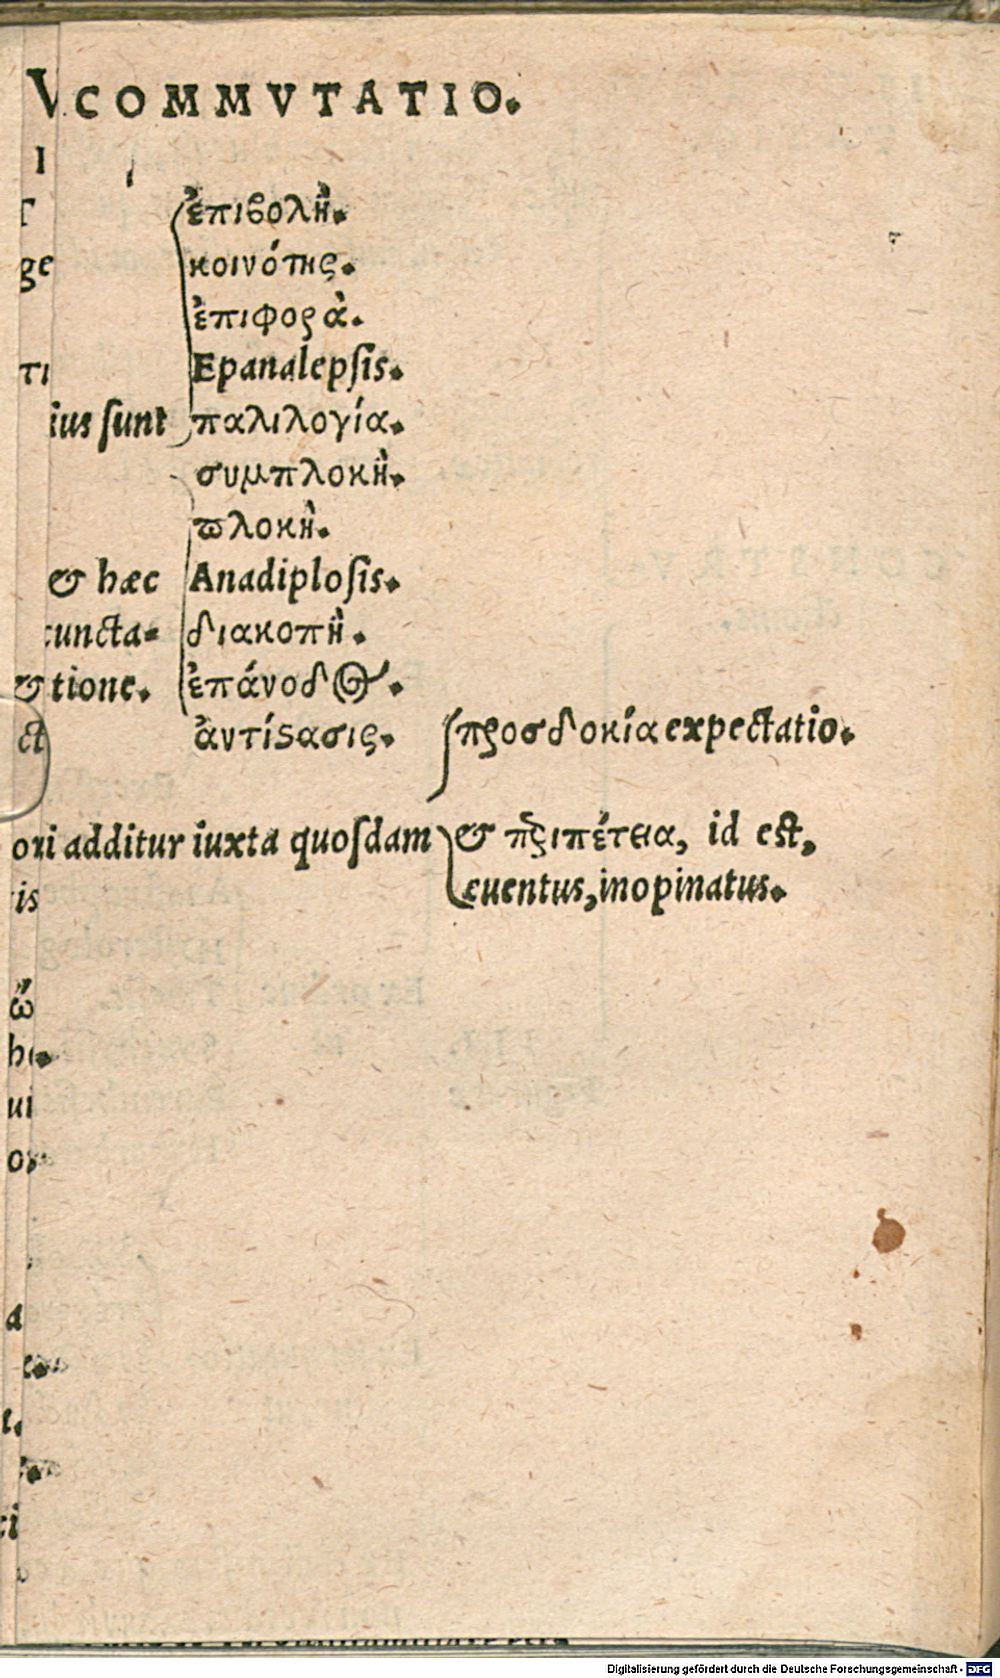 COMMVTATIO.
ἐπιβολὴ.
κοινότης.
ἐπιφορὰ.
Epanalepſis.
ſunt παλιλογία.
συμπλοκὴ.
ϖλοκὴ.
& hæc Anadiploſis.
διακοπὴ.
tione. ἐπάνοδος.
ἀντίϛασις. προσδοκία expectatio.
additur iuxta quoſdam & περιπέτεια, id eſt,
euentus, inopinatus.
Digitalisierung gefördert durch die Deutsche Forschungsgemeinschaft - DFG